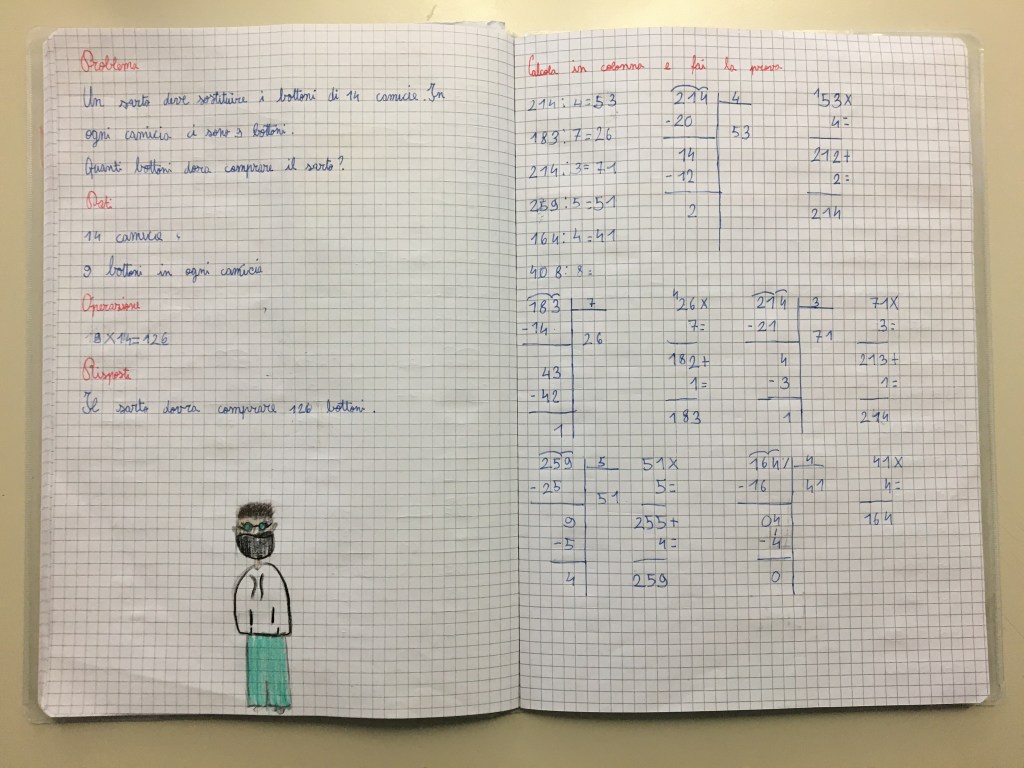 Problema
Un sarto deve sostituire i bottoni di 14 camicie. In
ogni camicia ci sono 9 bottoni.
Quanti bottoni dovra comprare il sarto?
Dati
14 camicie
9 bottoni in ogni camicia
Operazione
9×14=126
Risposta
Il sarto dovra comprare 126 bottoni.
Calcola in colonna e fai la prova
214:4=53
183:7=26
214:3=71
259:5=51
164:4=41
408:8=
214 4
-20 53
14
-12
2
153×
4=
212+
2=
214
183 7
-14 26
43
-42
1
426×
7=
182+
1=
183
214 3
-21 71
4
-3
1
71×
3=
213+
1=
214
259 5
-25 51
9
-5
4
51×
5=
255+
4=
259
164 4
-16 41
04
-4
0
41×
4=
164